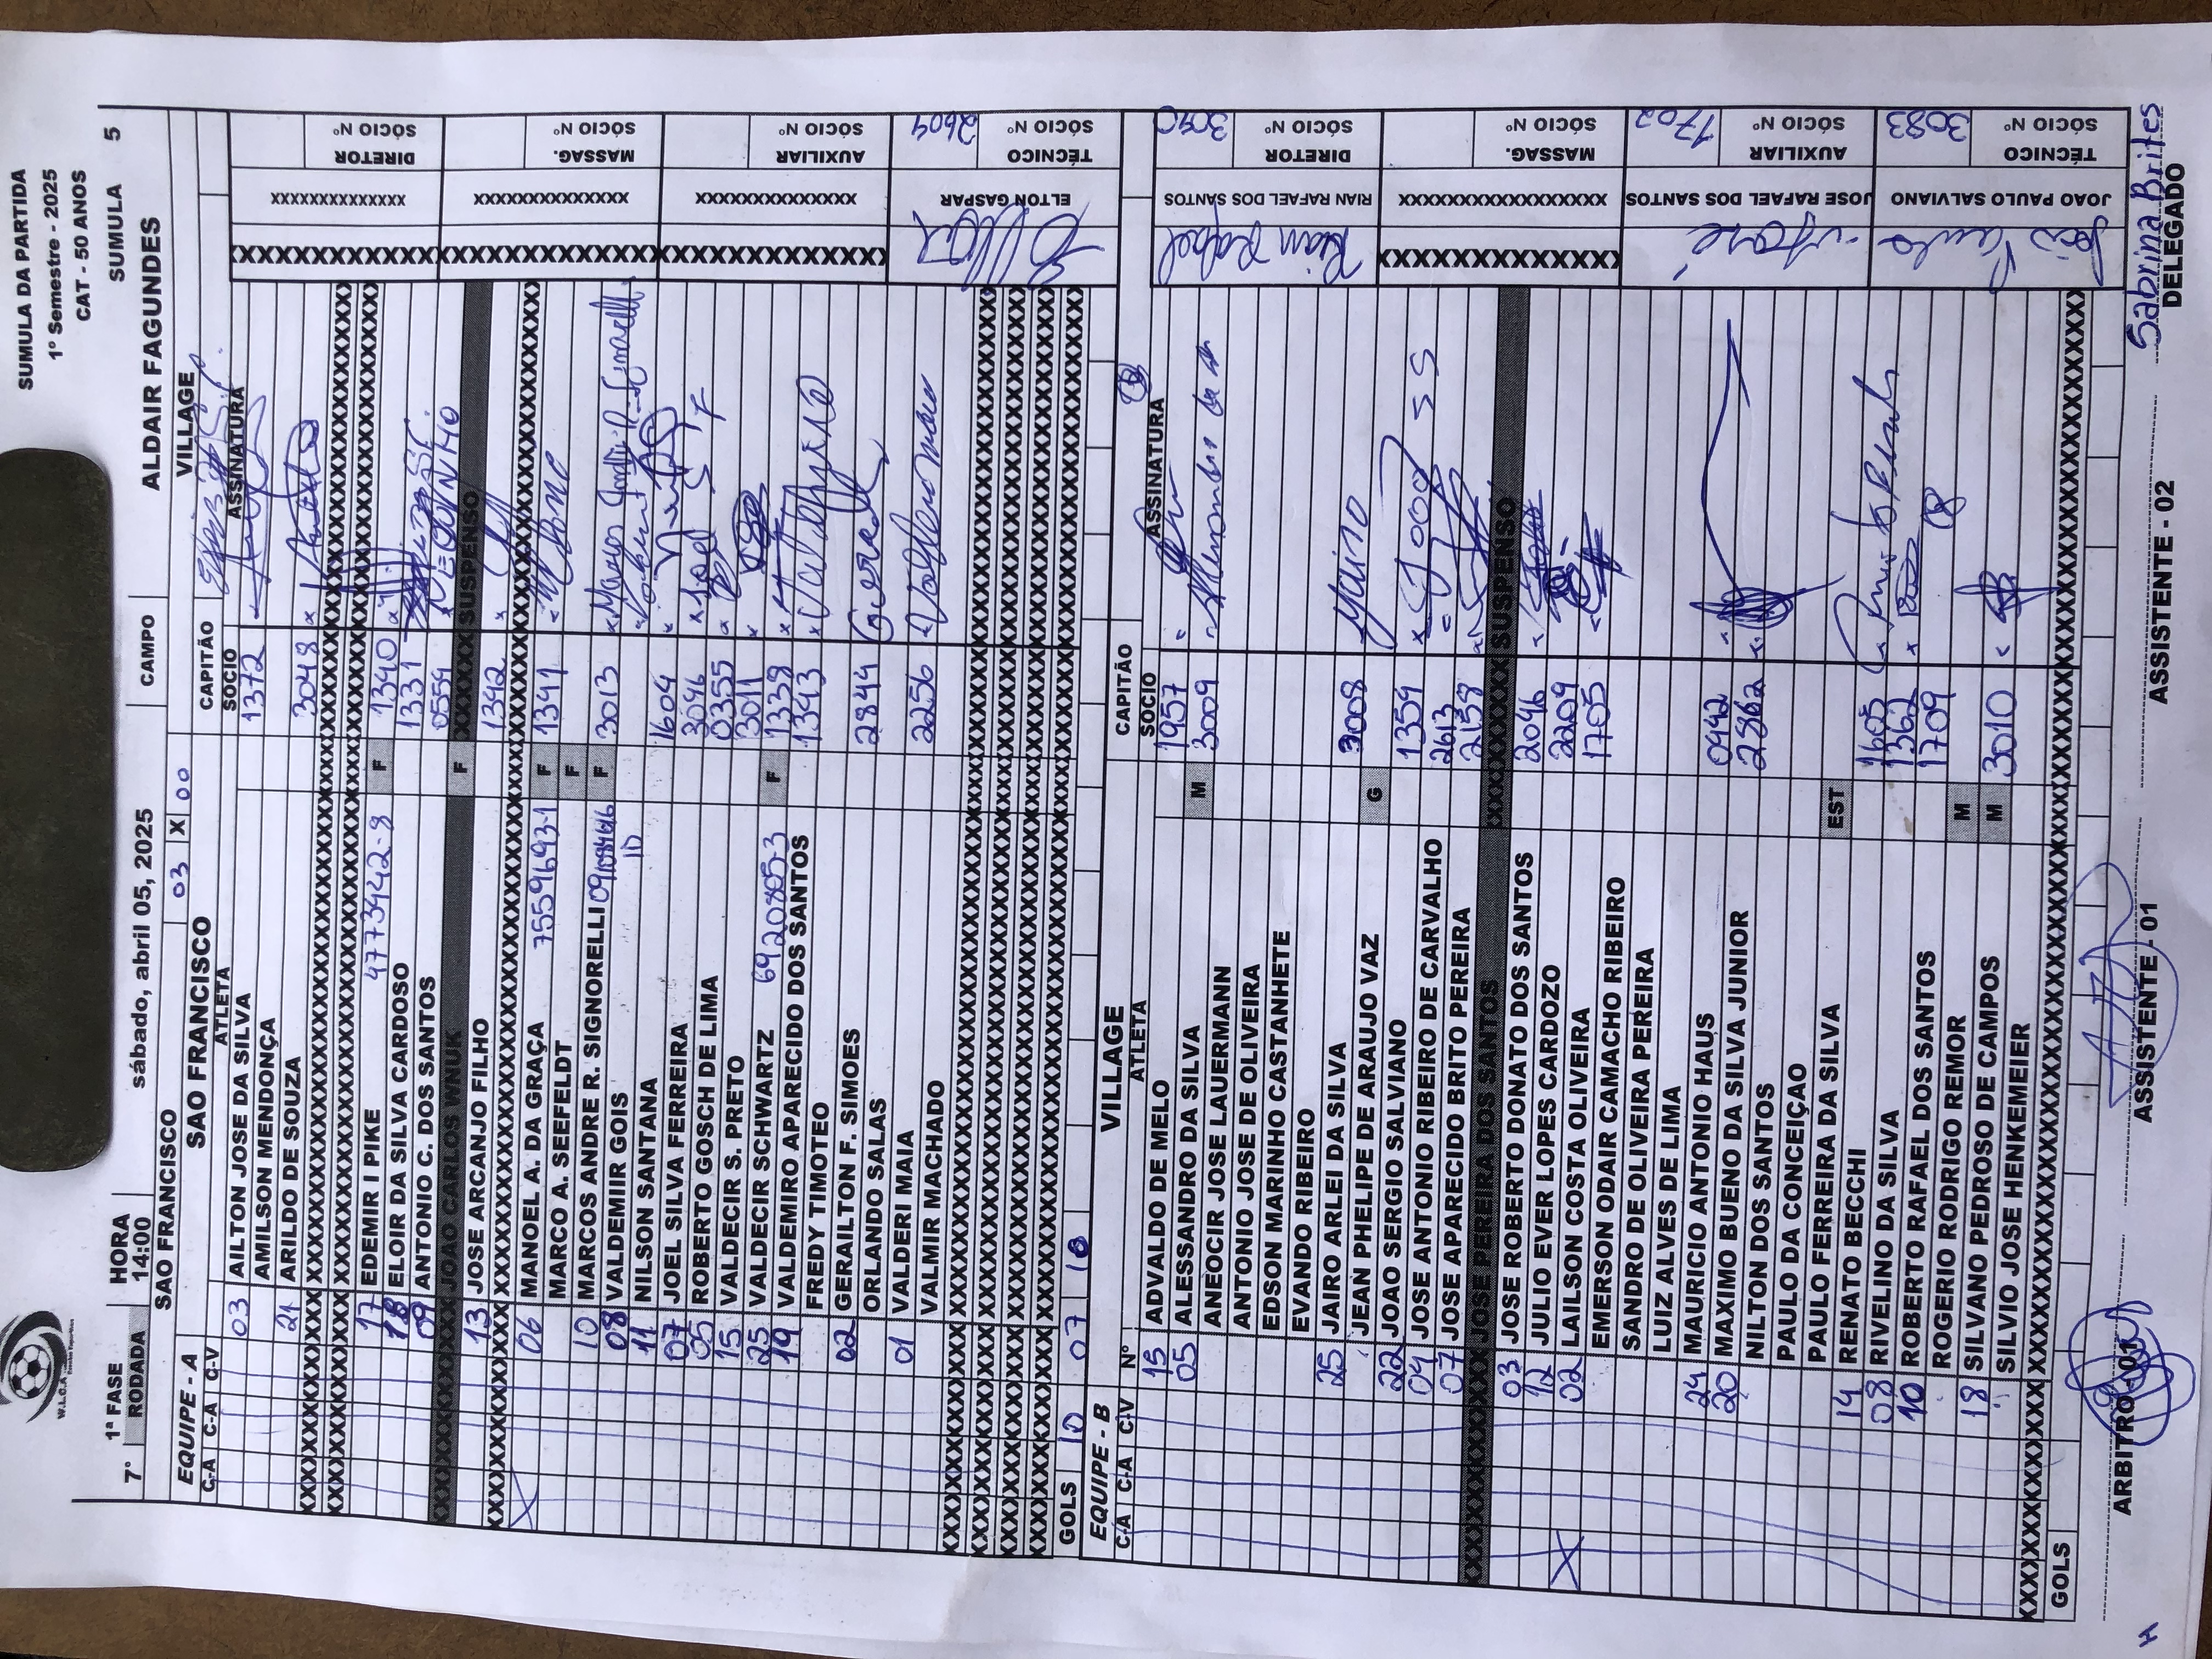 SUMULA DA PARTIDA
1º Semestre - 2025
CAT - 50 ANOS
W.L.C.A
1ª FASE HORA SUMULA 5
7º RODADA 14:00 sábado, abril 05, 2025 CAMPO ALDAIR FAGUNDES
SAO FRANCISCO 03 X 00 VILLAGE
EQUIPE - A SAO FRANCISCO CAPITÃO
C-A C-A C-V ATLETA SOCIO ASSINATURA
03 AILTON JOSE DA SILVA 1372
AMILSON MENDONÇA
21 ARILDO DE SOUZA 3048
17 EDEMIR I PIKE 47734142-8 F 1340
18 ELOIR DA SILVA CARDOSO 1331
09 ANTONIO C. DOS SANTOS 0559
JOAO CARLOS WNUK F XXXXXX SUSPENSO
13 JOSE ARCANJO FILHO 1342
06 MANOEL A. DA GRAÇA 75596693-1 F 1341
MARCO A. SEEFELDT F
10 MARCOS ANDRE R. SIGNORELLI F 3013
08 VALDEMIIR GOIS
11 NILSON SANTANA 1604
07 JOEL SILVA FERREIRA 3046
05 ROBERTO GOSCH DE LIMA 0355
15 VALDECIR S. PRETO 3011
25 VALDECIR SCHWARTZ 6920805-3 F 1339
19 VALDEMIRO APARECIDO DOS SANTOS 1343
FREDY TIMOTEO
02 GERAILTON F. SIMOES 2844
ORLANDO SALAS
01 VALDERI MAIA 2256
VALMIR MACHADO
GOLS 10 07 10
XXXXXXXXXXXXXX DIRETOR SÓCIO Nº
XXXXXXXXXXXXXX MASSAG. SÓCIO Nº
XXXXXXXXXXXXXX AUXILIAR SÓCIO Nº
ELTON GASPAR TÉCNICO SÓCIO Nº 2604
EQUIPE - B VILLAGE CAPITÃO
C-A C-A C-V Nº ATLETA SOCIO ASSINATURA
15 ADVALDO DE MELO 1957
05 ALESSANDRO DA SILVA M 3009
ANEOCIR JOSE LAUERMANN
ANTONIO JOSE DE OLIVEIRA
EDSON MARINHO CASTANHETE
EVANDO RIBEIRO
25 JAIRO ARLEI DA SILVA 3008
JEAN PHELIPE DE ARAUJO VAZ G
22 JOAO SERGIO SALVIANO 1359
04 JOSE ANTONIO RIBEIRO DE CARVALHO 2613
07 JOSE APARECIDO BRITO PEREIRA 2158
JOSE PEREIRA DOS SANTOS XXXXXX SUSPENSO
03 JOSE ROBERTO DONATO DOS SANTOS 2046
12 JULIO EVER LOPES CARDOZO 2209
02 LAILSON COSTA OLIVEIRA 1705
EMERSON ODAIR CAMACHO RIBEIRO
SANDRO DE OLIVEIRA PEREIRA
LUIZ ALVES DE LIMA
24 MAURICIO ANTONIO HAUS 0942
20 MAXIMO BUENO DA SILVA JUNIOR 2862
NILTON DOS SANTOS
PAULO DA CONCEIÇAO
PAULO FERREIRA DA SILVA EST
14 RENATO BECCHI 1605
08 RIVELINO DA SILVA 1362
10 ROBERTO RAFAEL DOS SANTOS 1709
ROGERIO RODRIGO REMOR M
18 SILVANO PEDROSO DE CAMPOS M 3010
SILVIO JOSE HENKEMEIER
GOLS
Rian Rafael RIAN RAFAEL DOS SANTOS DIRETOR SÓCIO Nº
XXXXXXXXXXXXXXXXX MASSAG. SÓCIO Nº
José JOSE RAFAEL DOS SANTOS AUXILIAR SÓCIO Nº 1702
João Paulo JOAO PAULO SALVIANO TÉCNICO SÓCIO Nº 3083
Sabrina Brites
ARBITRO - 01 ASSISTENTE - 01 ASSISTENTE - 02 DELEGADO